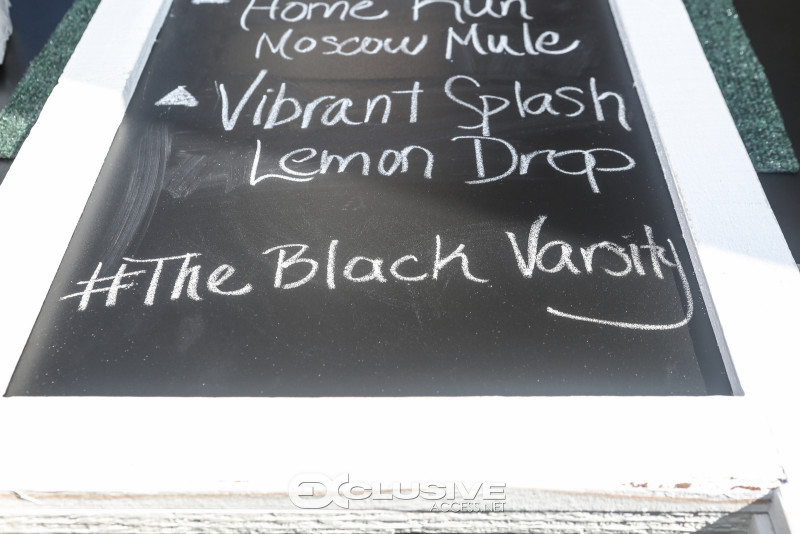 Home Run
Moscow Mule
Vibrant Splash
Lemon Drop
#The Black Varsity
EXCLUSIVE
ACCESS.NET